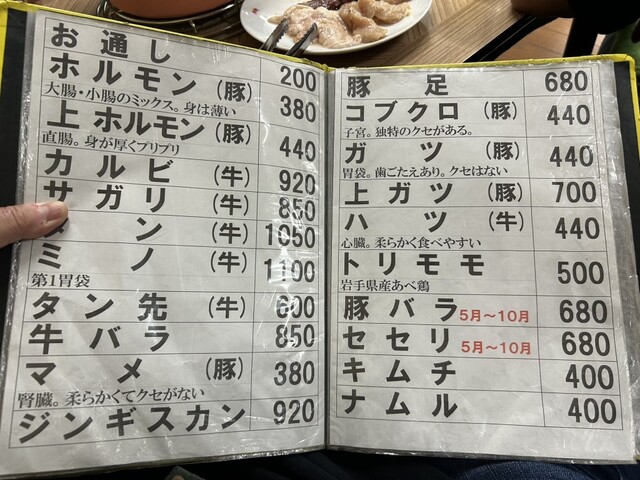 お通し 200
ホルモン (豚) 380
大腸・小腸のミックス。身は薄い
上ホルモン (豚) 440
直腸。身が厚くプリプリ
カルビ (牛) 920
サガリ (牛) 850
ン (牛) 1050
ミノ (牛) 1100
第1胃袋
タン先 (牛) 600
牛バラ 850
マメ (豚) 380
腎臓。柔らかくてクセがない
ジンギスカン 920
豚足 680
コブクロ (豚) 440
子宮。独特のクセがある。
ガツ (豚) 440
胃袋。歯ごたえあり。クセはない
上ガツ (豚) 700
ハツ (牛) 440
心臓。柔らかく食べやすい
トリモモ 500
岩手県産あべ鶏
豚バラ 5月〜10月 680
セセリ 5月〜10月 680
キムチ 400
ナムル 400